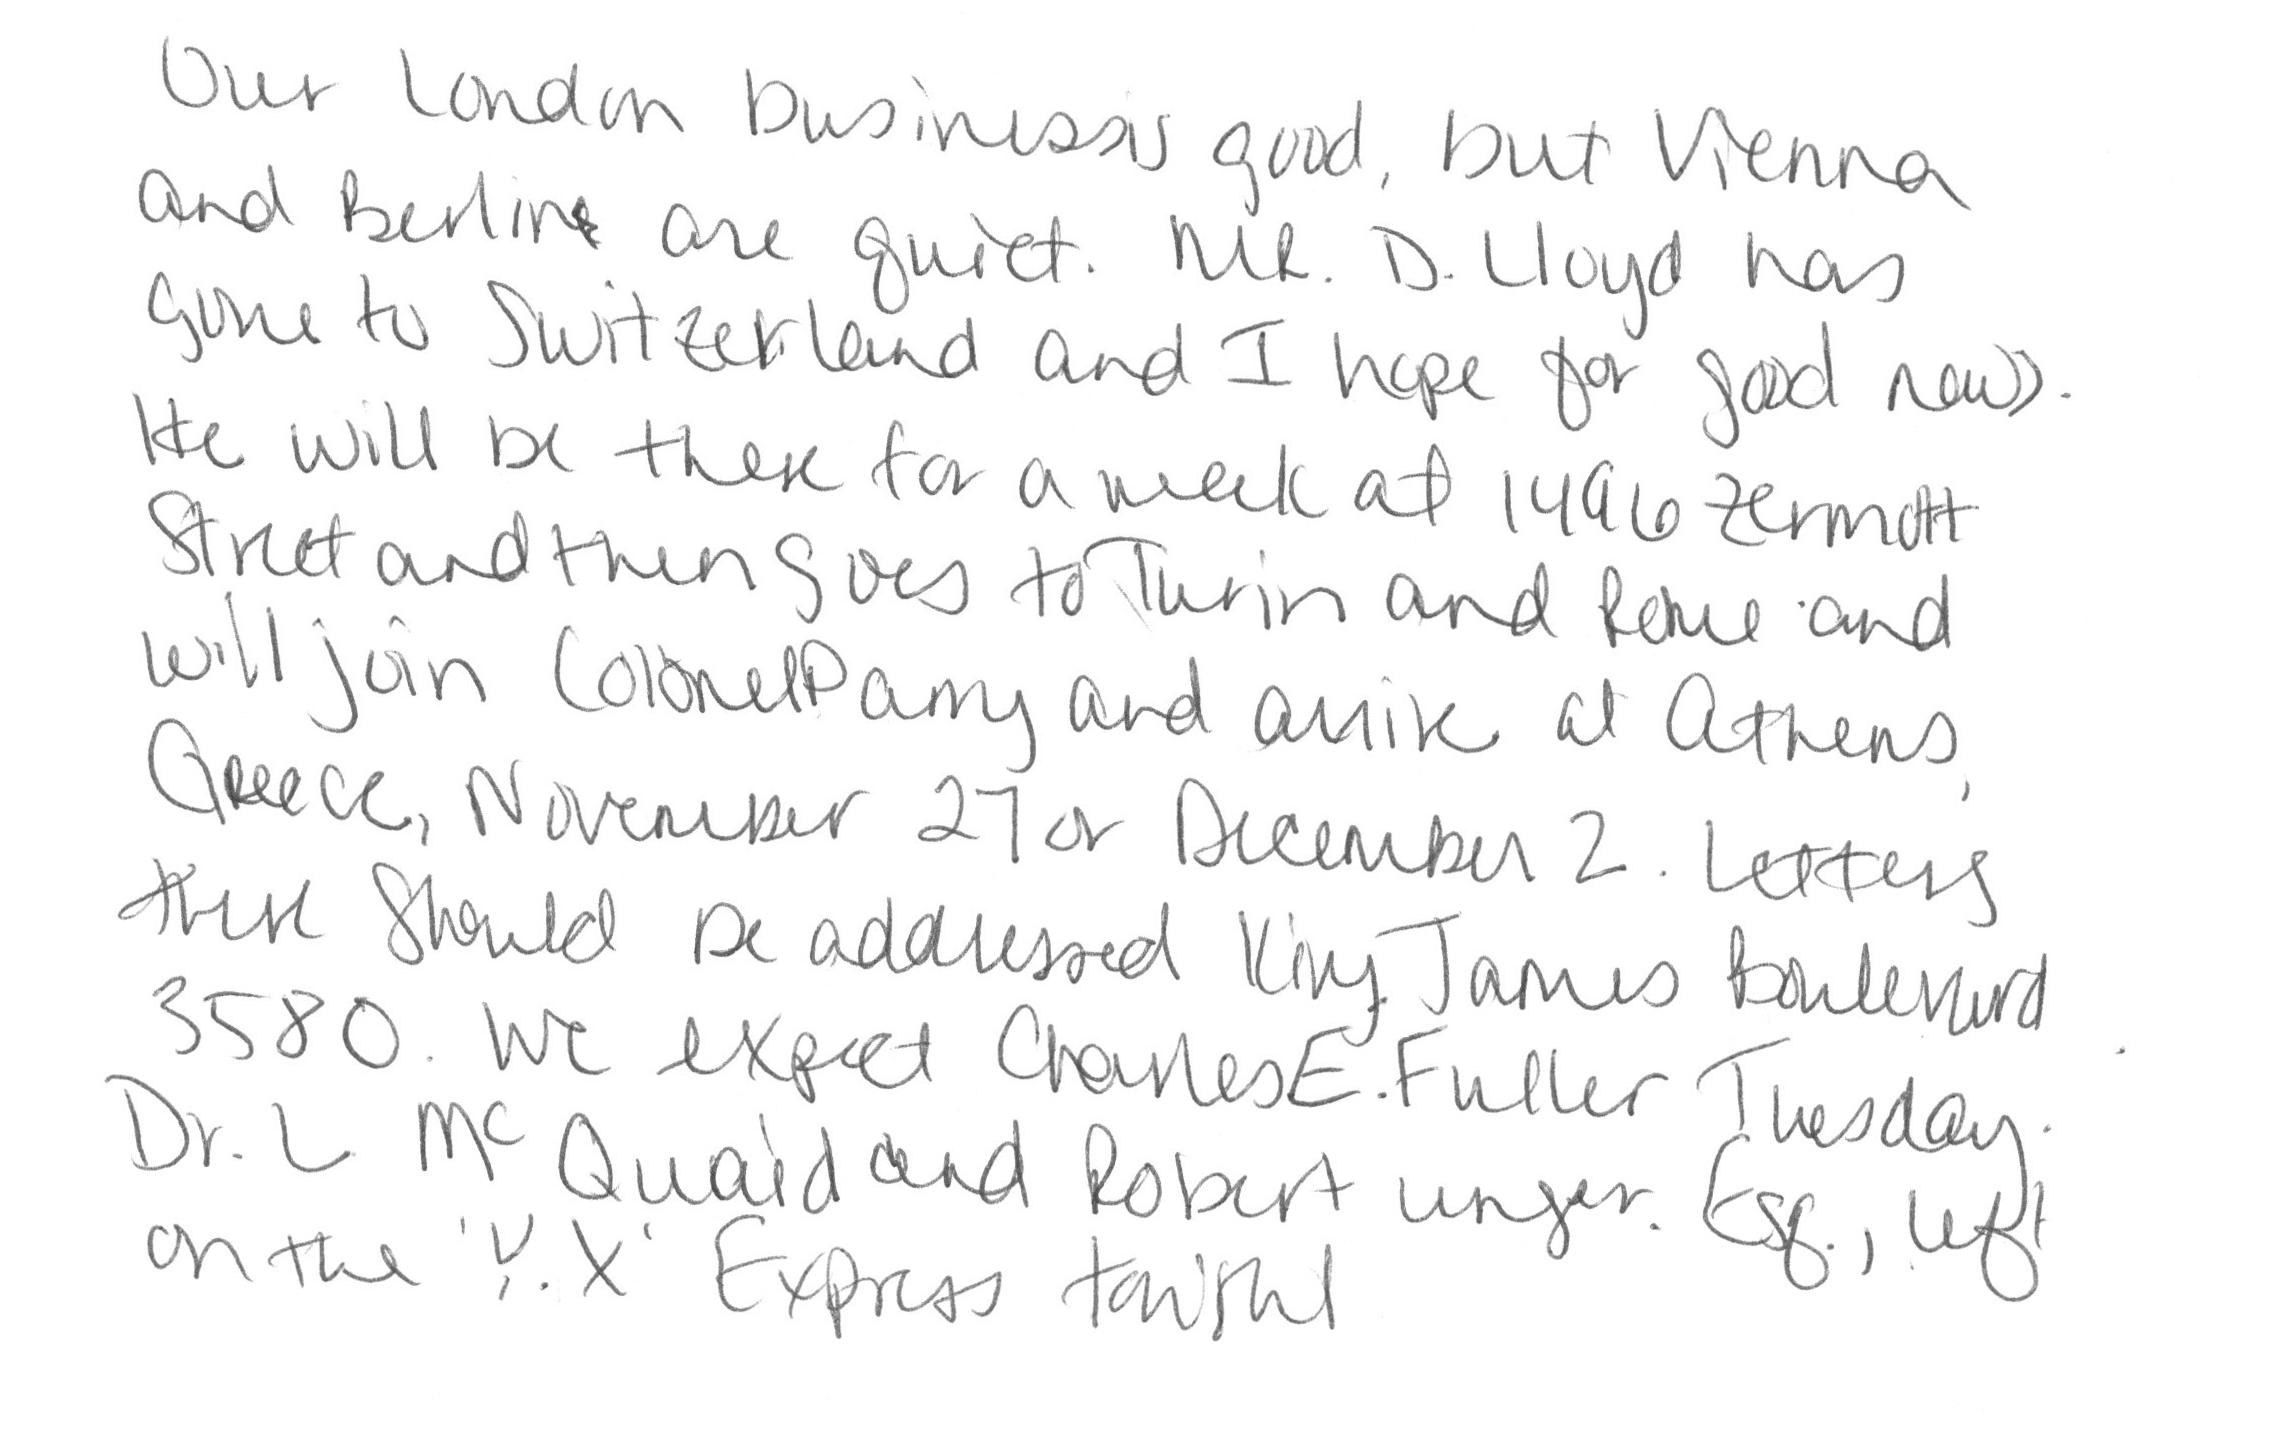 Our London business is good, but Vienna
and Berlin are quiet. Mr. D. Lloyd has
gone to Switzerland and I hope for good news.
He will be there for a week at 1496 Zermott
Street and then goes to Turin and Rome and
will join Colonel Parry and arrive at Athens,
Greece, November 27 or December 2. Letters
there should be addressed King James Boulevard
3580. We expect Charles E. Fuller Tuesday.
Dr. L McQuaid and Robert unger. Esq., left
on the 'Y.X' Express tonight